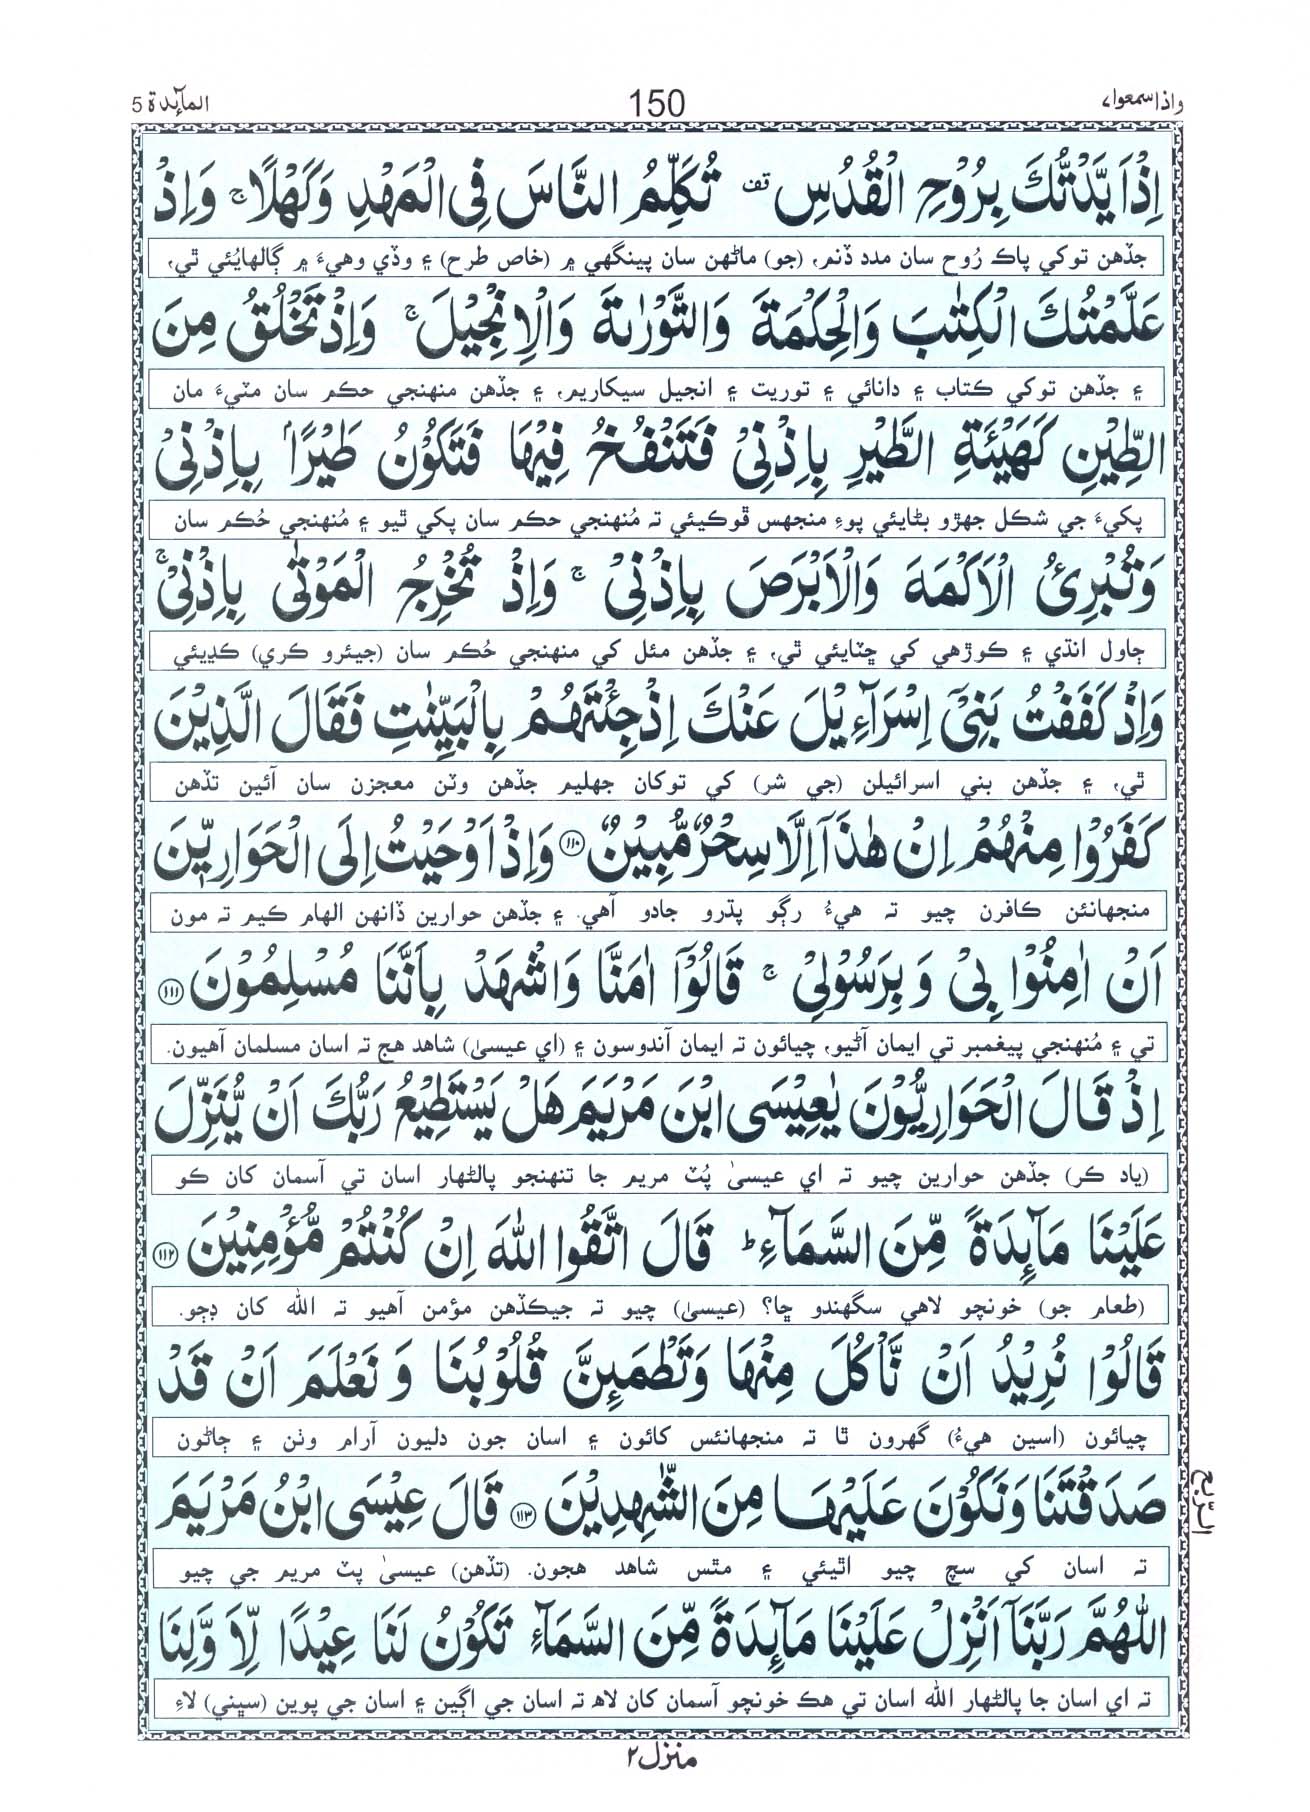 واذا سمعوا ٧ 150 المآئدة 5
اِذْ اَيَّدْتُّكَ بِرُوْحِ الْقُدُسِ ۣ تُكَلِّمُ النَّاسَ فِى الْمَهْدِ وَكَهْلًا ۚ وَاِذْ
جڏهن توکي پاڪ رُوح سان مدد ڏنم، (جو) ماڻهن سان پينگهي ۾ (خاص طرح) ۽ وڏي وهيءَ ۾ ڳالهايُئي ٿي،
عَلَّمْتُكَ الْكِتٰبَ وَالْحِكْمَةَ وَالتَّوْرٰىةَ وَالْاِنْجِيْلَ ۚ وَاِذْ تَخْلُقُ مِنَ
۽ جڏهن توکي ڪتاب ۽ دانائي ۽ توريت ۽ انجيل سيکاريم، ۽ جڏهن منهنجي حڪم سان مٽيءَ مان
الطِّيْنِ كَهَيْئَةِ الطَّيْرِ بِاِذْنِىْ فَتَنْفُخُ فِيْهَا فَتَكُوْنُ طَيْرًاۢ بِاِذْنِىْ
پکيءَ جي شڪل جهڙو بڻايئي پوءِ منجهس ڦوڪيئي تہ مُنهنجي حڪم سان پکي ٿيو ۽ مُنهنجي حُڪم سان
وَتُبْرِئُ الْاَكْمَهَ وَالْاَبْرَصَ بِاِذْنِىْ ۚ وَاِذْ تُخْرِجُ الْمَوْتٰى بِاِذْنِىْ ۚ
ڄاول انڌي ۽ ڪوڙهي کي ڇٽايئي ٿي، ۽ جڏهن مئل کي منهنجي حُڪم سان (جيئرو ڪري) ڪڍيئي
وَاِذْ كَفَفْتُ بَنِىْٓ اِسْرَآءِيْلَ عَنْكَ اِذْ جِئْتَهُمْ بِالْبَيِّنٰتِ فَقَالَ الَّذِيْنَ
ٿي، ۽ جڏهن بني اسرائيلن (جي شر) کي توکان جهليم جڏهن وٽن معجزن سان آئين تڏهن
كَفَرُوْا مِنْهُمْ اِنْ هٰذَآ اِلَّا سِحْرٌ مُّبِيْنٌ ١١٠ وَاِذْ اَوْحَيْتُ اِلَى الْحَوَارِيّٖنَ
منجهانئن ڪافرن چيو تہ هيءُ رڳو پڌرو جادو آهي. ۽ جڏهن حوارين ڏانهن الهام ڪيم تہ مون
اَنْ اٰمِنُوْا بِىْ وَبِرَسُوْلِىْ ۚ قَالُوْٓا اٰمَنَّا وَاشْهَدْ بِاَنَّنَا مُسْلِمُوْنَ ١١١
تي ۽ مُنهنجي پيغمبر تي ايمان آڻيو، چيائون تہ ايمان آندوسون ۽ (اي عيسىٰ) شاهد هج تہ اسان مسلمان آهيون.
اِذْ قَالَ الْحَوَارِيُّوْنَ يٰعِيْسَى ابْنَ مَرْيَمَ هَلْ يَسْتَطِيْعُ رَبُّكَ اَنْ يُّنَزِّلَ
(ياد ڪر) جڏهن حوارين چيو تہ اي عيسىٰ پُٽ مريم جا تنهنجو پالڻهار اسان تي آسمان کان ڪو
عَلَيْنَا مَآئِدَةً مِّنَ السَّمَآءِ ؕ قَالَ اتَّقُوا اللّٰهَ اِنْ كُنْتُمْ مُّؤْمِنِيْنَ ١١٢
(طعام جو) خونچو لاهي سگهندو ڇا؟ (عيسىٰ) چيو تہ جيڪڏهن مؤمن آهيو تہ الله کان ڊڄو.
قَالُوْا نُرِيْدُ اَنْ نَّاْكُلَ مِنْهَا وَتَطْمَئِنَّ قُلُوْبُنَا وَنَعْلَمَ اَنْ قَدْ
چيائون (اسين هيءُ) گهرون ٿا تہ منجهانئس کائون ۽ اسان جون دليون آرام وٺن ۽ ڄاڻون
صَدَقْتَنَا وَنَكُوْنَ عَلَيْهَا مِنَ الشّٰهِدِيْنَ ١١٣ قَالَ عِيْسَى ابْنُ مَرْيَمَ
تہ اسان کي سچ چيو اٿيئي ۽ مٿس شاهد هجون. (تڏهن) عيسىٰ پٽ مريم جي چيو
اللّٰهُمَّ رَبَّنَآ اَنْزِلْ عَلَيْنَا مَآئِدَةً مِّنَ السَّمَآءِ تَكُوْنُ لَنَا عِيْدًا لِّاَوَّلِنَا
تہ اي اسان جا پالڻهار الله اسان تي هڪ خونچو آسمان کان لاهہ تہ اسان جي اڳين ۽ اسان جي پوين (سڀني) لاءِ
منزل ٢